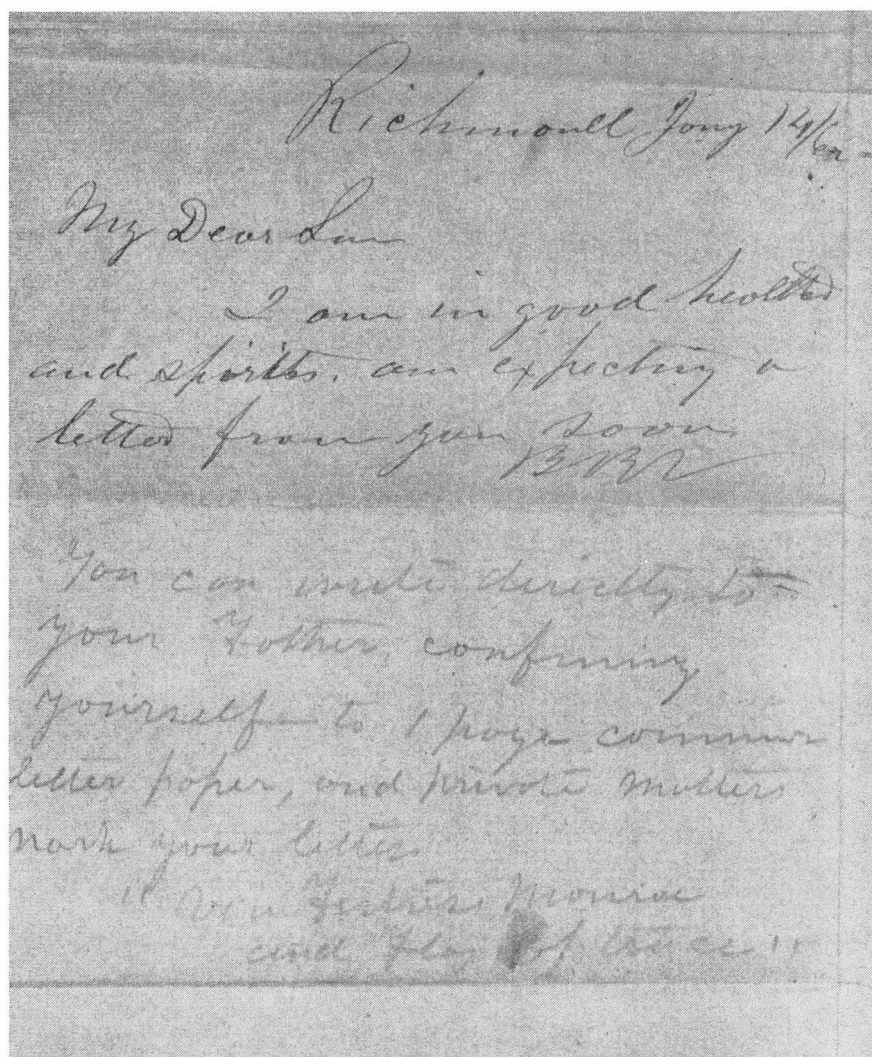 Richmond Jany 14/62
My Dear Son
I am in good health
and spirits. am expecting a
letter from you soon
You can write directly to
your Father, confining
yourself to 1 page common
letter paper, and private matters
mark your letter
"Via Fortress Monroe
and Flag of truce"